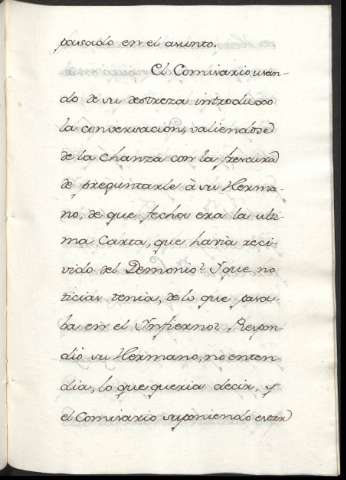 passado en el asunto.
El Comisario usan-
do de su destreza introduxo
la conversacion, valiendose
de la chanza con la frescura
de preguntarle à su Herma-
no, de que fecha era la ulti-
ma Carta, que havia reci-
vido del Demonio? Y que no-
ticias tenia, de lo que pasa-
ba en el Infierno? Respon-
dió su Hermano, no enten-
dia, lo que queria decir, y
el Comisario suponiendo estar